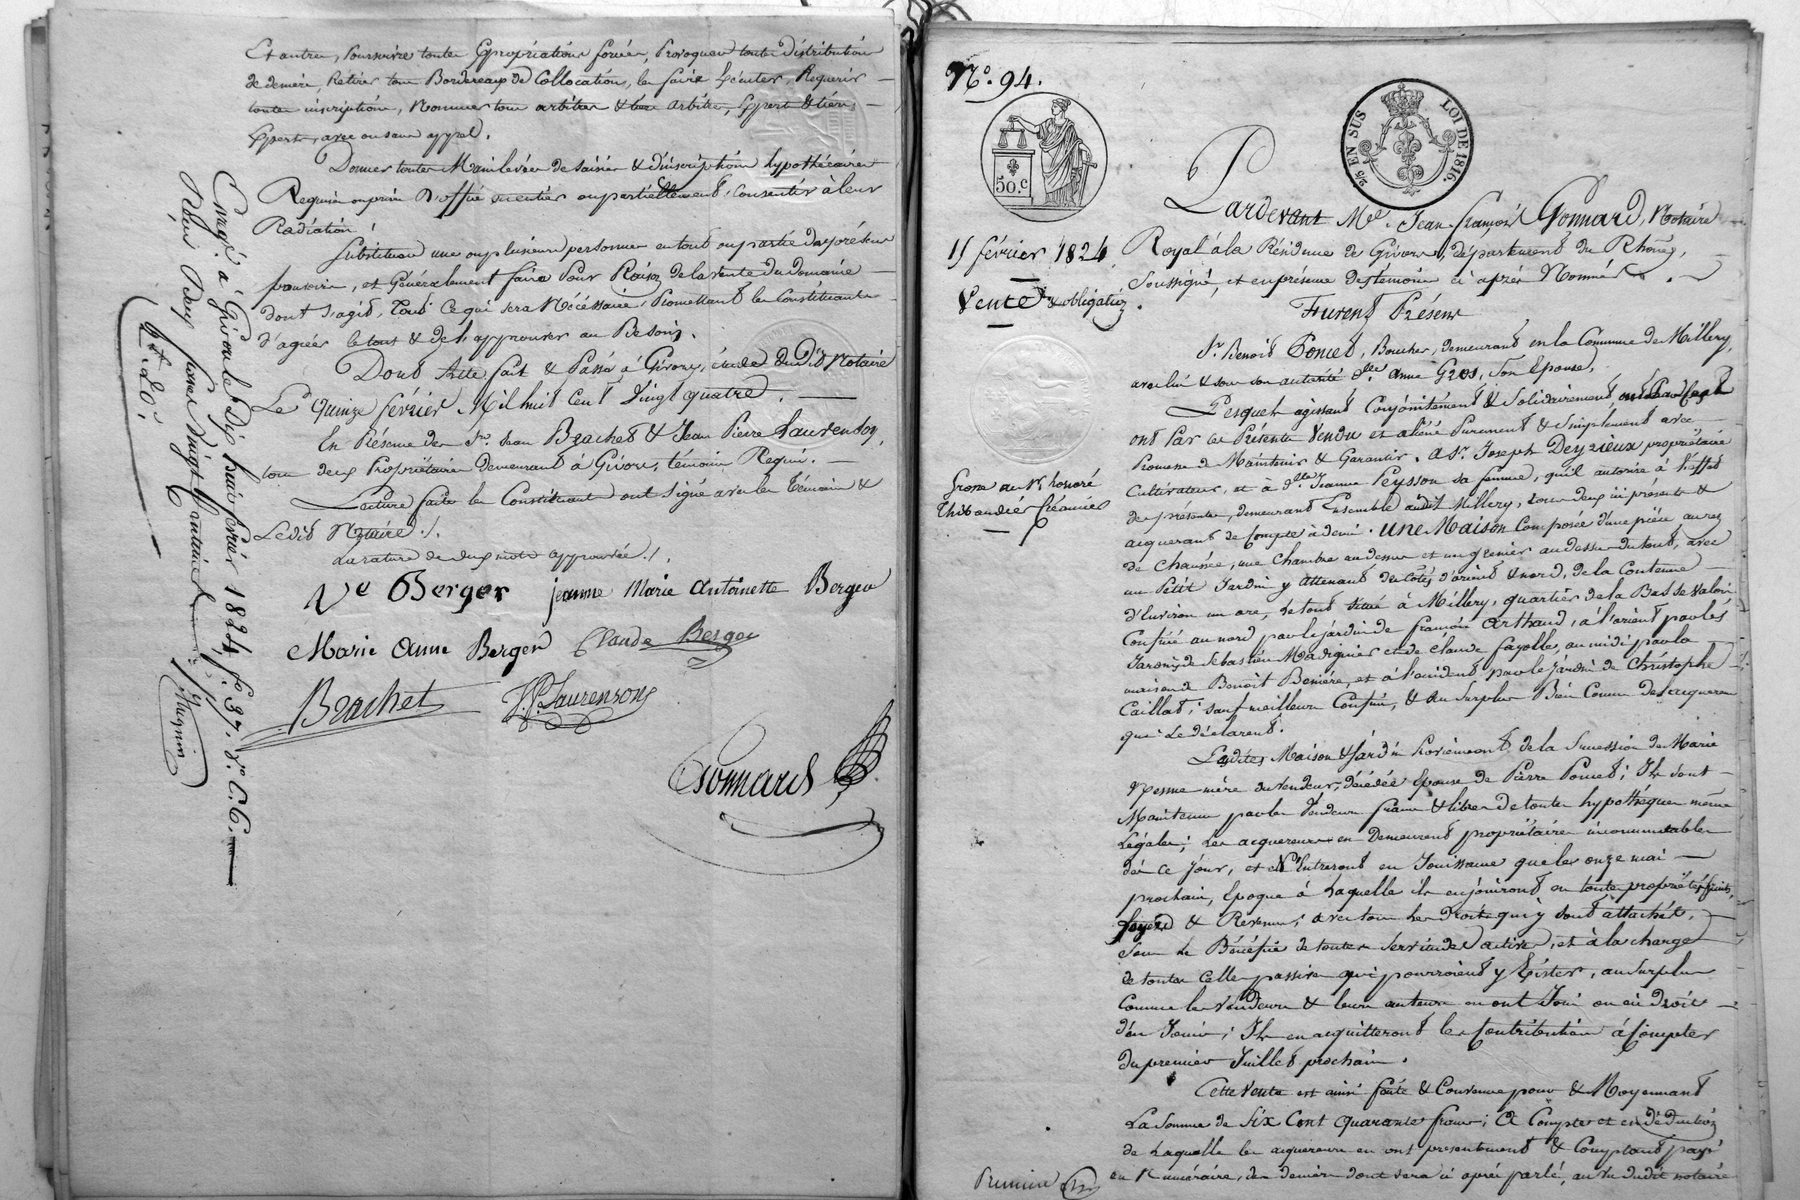 Et autres, Poursuivre toutes Expropriations forcées, Provoquer toutes distributions
de deniers, Retirer tous Bordereaux de Collocation, les faire Exécuter, Requerir
toutes inscriptions, Nommer tous arbitres & tiers arbitres, Experts & tiers
Experts, avec ou sans appel.
Donner toutes Mainlevées de saisies & d'inscriptions hypothécaires
Requises ou prises d'office en entier ou partiellement, Consentir à leur
Radiation.
Substituer une ou plusieurs personnes en tout ou partie des présens
pouvoirs, et Généralement faire Pour Raison de la vente du domaine
dont s'agit, Tout ce qui sera Nécessaire, Promettant les Constituants
d'agréer le tout & de l'approuver au Besoin.
Dont Acte fait & Passé à Givors, étude du Dit Notaire
Le quinze février Mil huit Cent Vingt quatre.
En Présence des Srs. Jean Brachet & Jean Pierre Laurenson,
tous deux Propriétaires demeurant à Givors, témoins Requis.
Lecture faite les Constituants ont signé avec les Témoins &
Ledit Notaire./.
La rature de deux mots approuvée./.
Ve Berger jeanne Marie Antoinette Berger
Marie Anne Berger Claude Berger
Brachet J.P. Laurenson
Gonnard
Enreg. à Givors le Dix huit février 1824, fo. 37. Vo. C. 6.
Reçu Deux francs Vingt Centimes
No. 94.
50.c
2/5 EN SUS LOI DE 1816.
15 février 1824
Vente & obligation
Grosse au Sr. honoré
Thibaudier Créancier
Pardevant Me. Jean François Gonnard, Notaire
Royal à la Résidence de Givors, département du Rhône,
Soussigné, et en présence des témoins ci après Nommés.
Furent Présens
Sr. Benoit Poncet, Boucher, demeurant en la Commune de Millery,
avec lui & sous son autorité dlle. Anne Gros, Son Epouse,
Lesquels agissant Conjointement & Solidairement,
ont Par ces Présentes Vendu et aliéné Purement & Simplement avec
Promesse de Maintenir & Garantir. A Sr. Joseph Deyrieux propriétaire
Cultivateur, et à dlle. Jeanne Peysson sa femme, qu'il autorise à l'effet
des présentes, demeurant Ensemble audit Millery, tous deux ici présents &
acquérant de Compte à demi. Une Maison Composée d'une pièce au rez
de Chaussée, une Chambre au dessus et un grenier au dessus du tout, avec
un Petit Jardin y attenant des Côtés d'orient & nord, de la Contenue
d'Environ un are, Le tout situé à Millery, quartier de la Basse Valois,
Confiné au nord par le jardin de françois Arthaud, à l'orient par les
Jardins de Sebastien Madignier et de claude fayolle, au midi par la
maison de Benoit Benière, et à l'occident par le Jardin de Christophe
Caillat, sauf meilleurs Confins, & du Surplus Bien Connus des acquereurs
qui Le déclarent.
Lesdites Maison & Jardin Proviennent de la Succession de Marie
mère du vendeur, décédée Epouse de Pierre Poncet; Ils sont
Maintenus par les Vendeurs francs & libres de toutes hypothéques même
Légales; Les acquereurs en Demeurent propriétaires incommutables
dès ce Jour, et N'Entreront en Jouissance que les onze mai
prochain, Epoque à Laquelle ils en jouiront en toute propriété, fruits,
Loyers & Revenus, avec tous les Droits qui y sont attachés,
Sous le Bénéfice de toutes Servitudes actives, et à la charge
de toutes Celles passives qui pourroient y Exister, au Surplus
Comme les Vendeurs & leurs auteurs en ont Joui ou eu droit
d'en Jouir; Ils en acquitteront les Contributions à Compter
du premier Juillet prochain.
Cette Vente est ainsi faite & Convenue pour & Moyennant
La Somme de Six Cent quarante francs; A Compte et en Déduction
de Laquelle les acquereurs en ont présentement & Comptant payé
en Numéraire, des deniers dont sera ci après parlé, au Vu dudit notaire